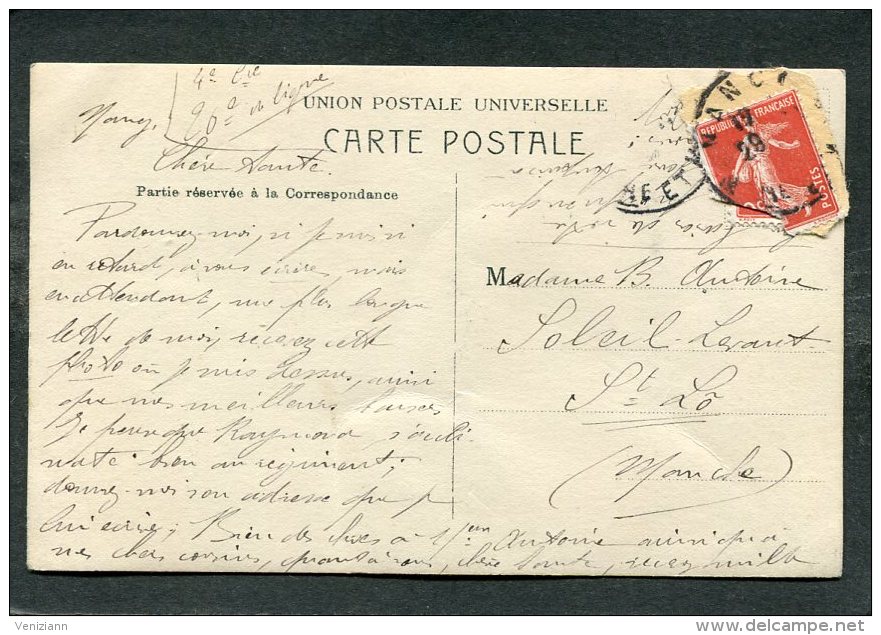 4e Cie
26e de ligne
Nancy
UNION POSTALE UNIVERSELLE
CARTE POSTALE
Chère tante.
Partie réservée à la Correspondance
Pardonnez-moi, si je suis
en retard, à vous écrire, mais
en attendant, une plus longue
lettre de moi, recevez cette
photo où je suis dessus, ainsi
que mes meilleures
Je pense que Raymond
bien au régiment;
donnez-moi son adresse que je
lui écrive; Bien des choses à Mr Antoine ainsi qu'à
mes chers cousins, quant à vous, chère tante, recevez mille
Madame B. Antoine
Soleil-Levant
St Lô
(Manche)
NANCY
29
REPUBLIQUE FRANÇAISE
POSTES
Veniziann
delcampe.net